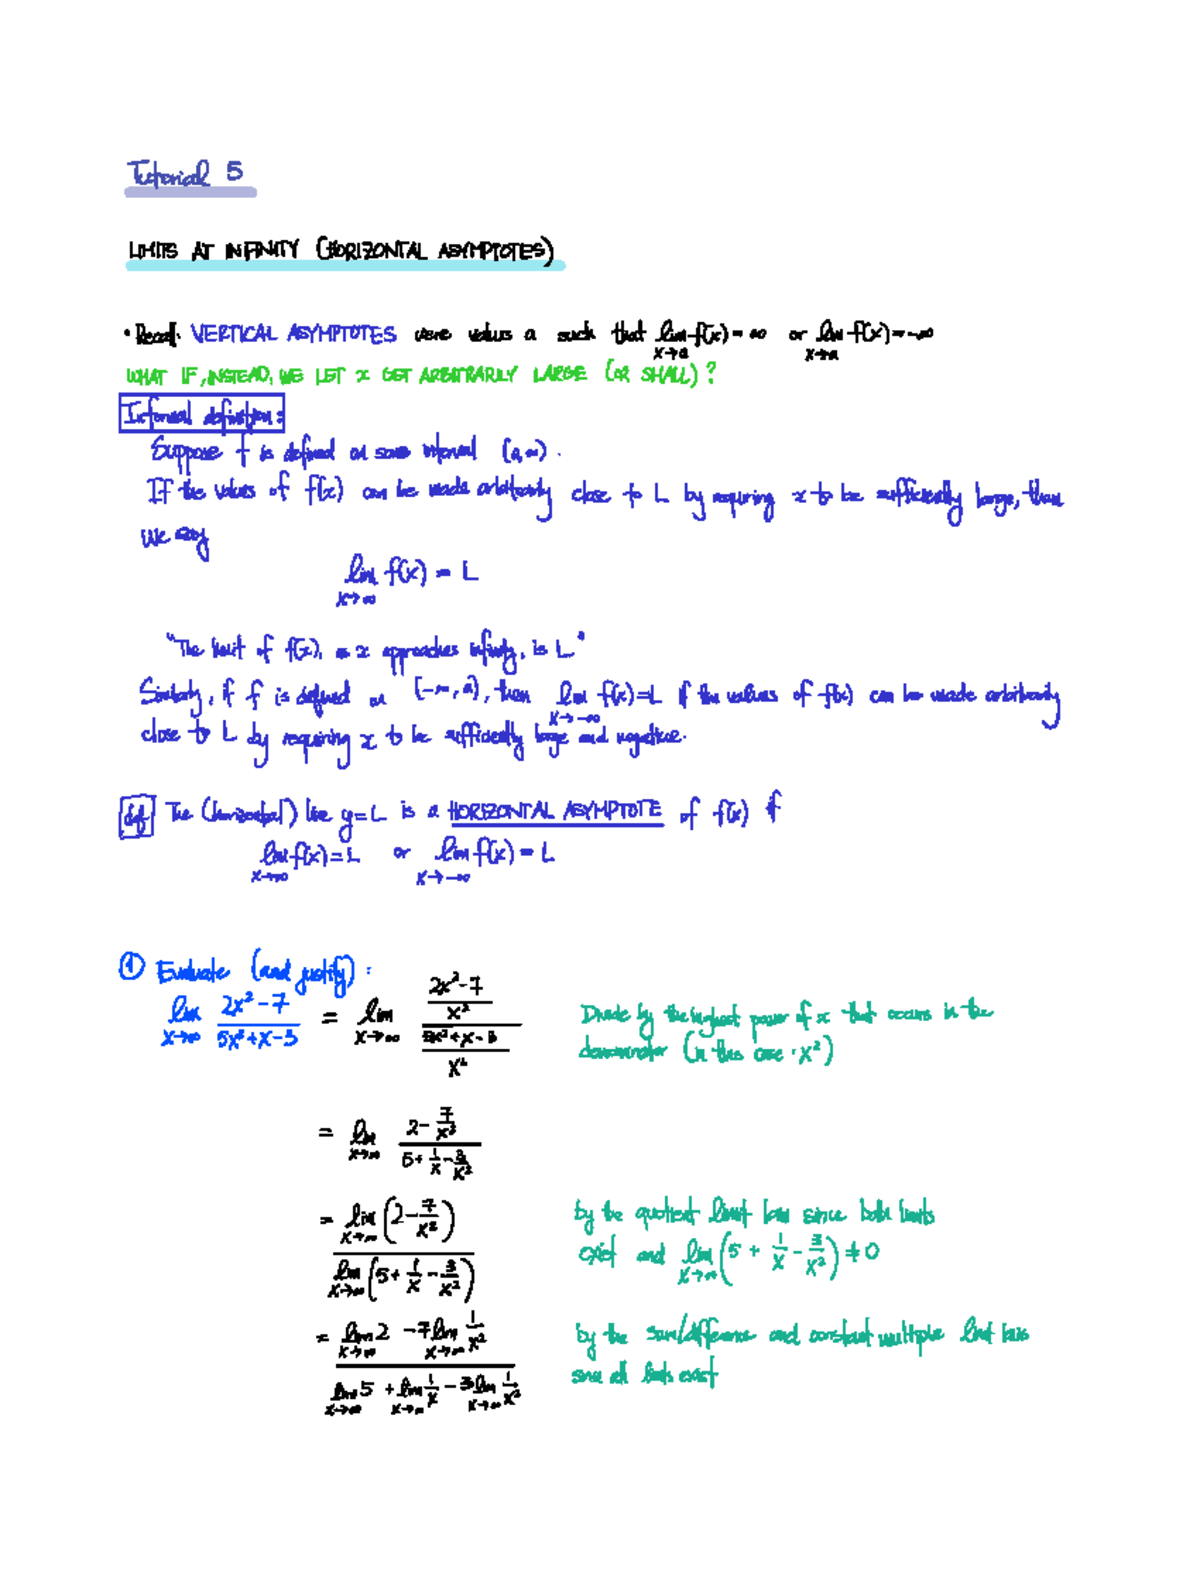 Tutorial 5
LIMITS AT INFINITY (HORIZONTAL ASYMPTOTES)
• Recall: VERTICAL ASYMPTOTES were values a such that lim x→a f(x) = ∞ or lim x→a f(x) = -∞
WHAT IF, INSTEAD, WE LET x GET ARBITRARILY LARGE (OR SMALL)?
Informal definition:
Suppose f is defined on some interval (a,∞).
If the values of f(x) can be made arbitrarily close to L by requiring x to be sufficiently large, then
we say
lim x→∞ f(x) = L
"The limit of f(x), as x approaches infinity, is L"
Similarly, if f is defined on (-∞, a), then lim x→-∞ f(x)=L if the values of f(x) can be made arbitrarily
close to L by requiring x to be sufficiently large and negative.
def The (horizontal) line y=L is a HORIZONTAL ASYMPTOTE of f(x) if
lim x→∞ f(x)=L or lim x→-∞ f(x) = L
① Evaluate (and justify):
lim x→∞ (2x²-7)/(5x²+x-3) = lim x→∞ ((2x²-7)/x²)/((5x²+x-3)/x²) Divide by the highest power of x that occurs in the
denominator (in this case: x²)
= lim x→∞ (2 - 7/x²)/(5 + 1/x - 3/x²)
= lim x→∞ (2 - 7/x²) / lim x→∞ (5 + 1/x - 3/x²) by the quotient limit law since both limits
exist and lim x→∞ (5 + 1/x - 3/x²) ≠ 0
= (lim x→∞ 2 - 7 lim x→∞ 1/x²) / (lim x→∞ 5 + lim x→∞ 1/x - 3 lim x→∞ 1/x²) by the sum/difference and constant multiple limit laws
since all limits exist